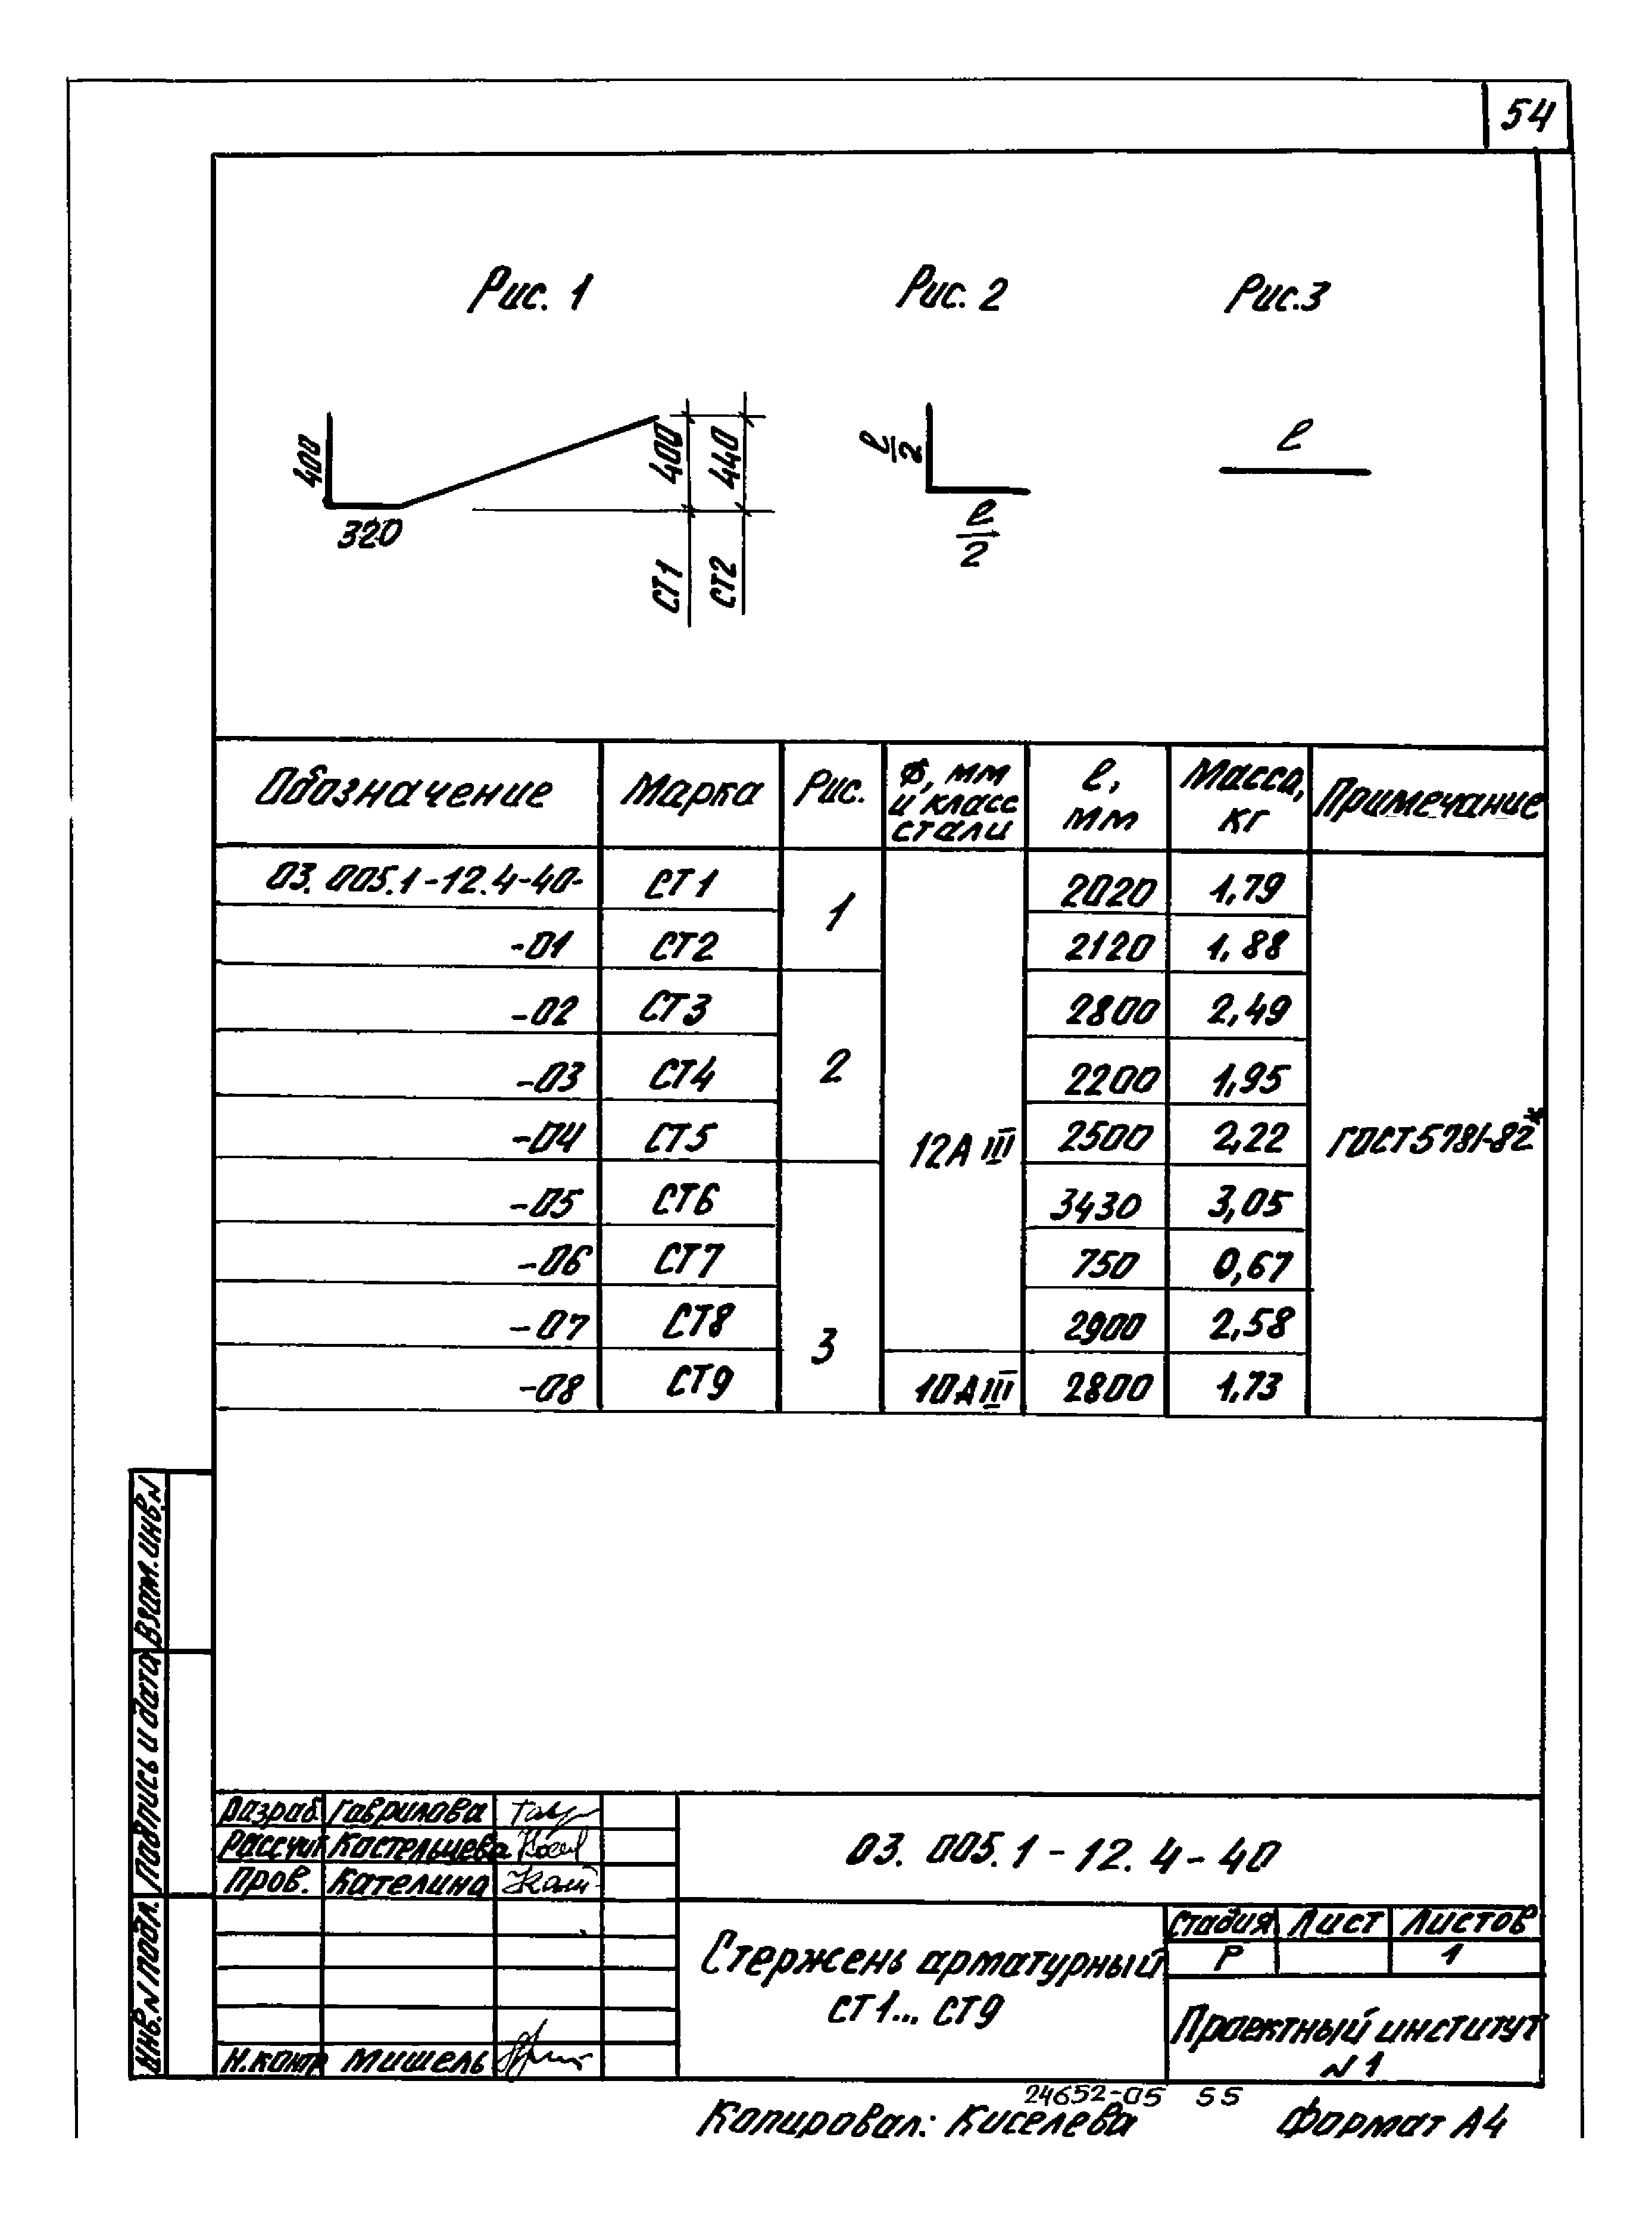 54
Рис. 1
Рис. 2
Рис.3
400
320
400
440
СТ1
СТ2
l/2
l/2
l
Обозначение Марка Рис. Ø, мм и класс стали l, мм Масса, кг Примечание
03.005.1-12.4-40- СТ1 1 12АIII 2020 1,79 ГОСТ5781-82*
-01 СТ2 2120 1,88
-02 СТ3 2 2800 2,49
-03 СТ4 2200 1,95
-04 СТ5 2500 2,22
-05 СТ6 3 3430 3,05
-06 СТ7 750 0,67
-07 СТ8 2900 2,58
-08 СТ9 10АIII 2800 1,73
Взам.инв.N
Подпись и дата
Инв.N подл.
Разраб Гаврилова
Рассчит Костельцева
Пров. Кателина
Н.контр Мишель
03.005.1-12.4-40
Стержень арматурный
СТ1... СТ9
Стадия Лист Листов
Р 1
Проектный институт
N1
24652-05 55
Копировал: Киселева Формат А4